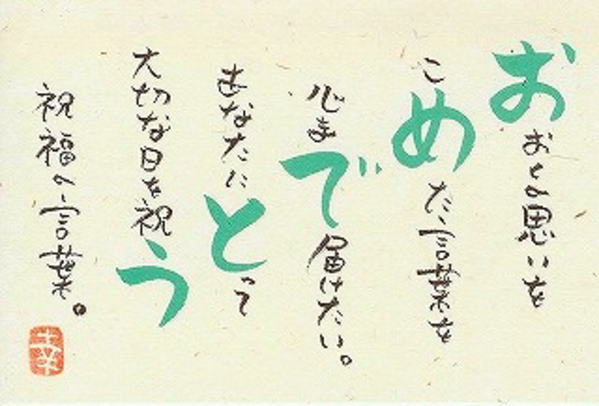 おおくの思いを
こめた言葉を
心まで届けたい。
あなたにとって
大切な日を祝う
祝福の言葉。
幸